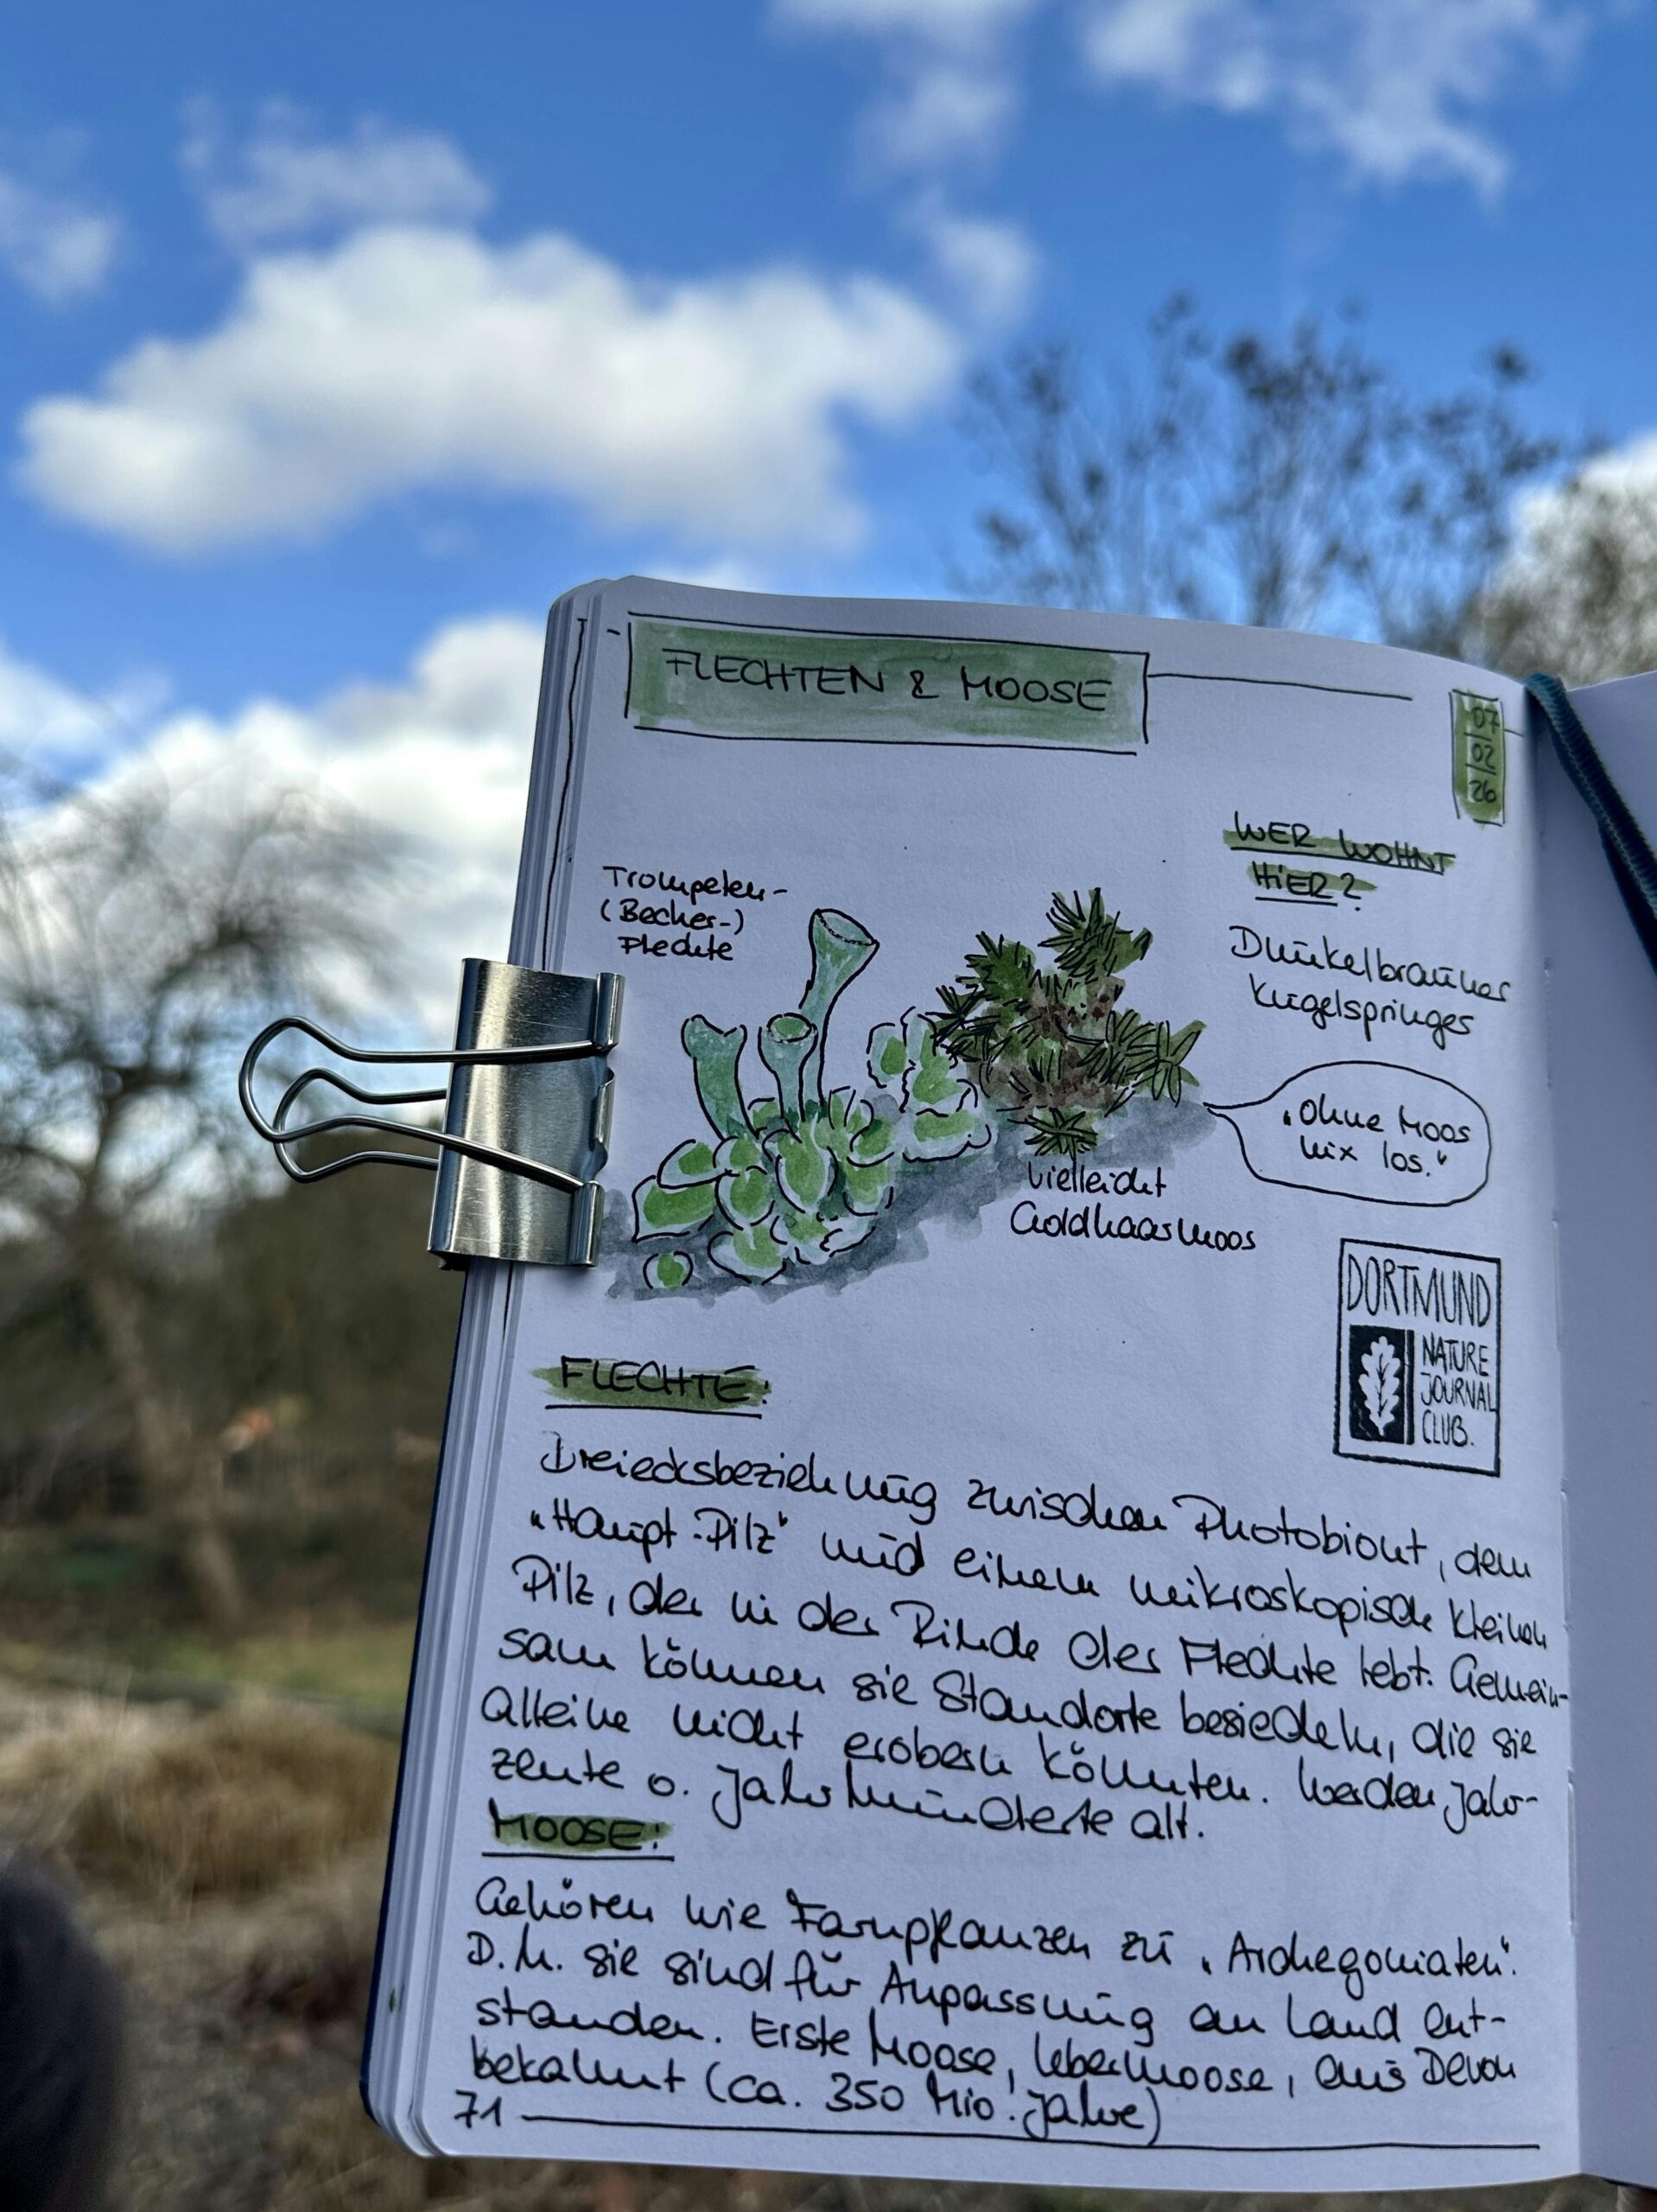 FLECHTEN & MOOSE
07
02
26
WER WOHNT
HIER?
Dunkelbrauner
Kugelspringer
Trompeten-
(Becher-)
Flechte
„Ohne Moos
nix los."
vielleicht
Goldhaarmoos
DORTMUND
NATURE
JOURNAL
CLUB.
FLECHTE:
Dreiecksbeziehung zwischen Photobiont, dem
„Haupt-Pilz" und einem mikroskopisch kleinen
Pilz, der in der Rinde der Flechte lebt. Gemein-
sam können sie Standorte besiedeln, die sie
alleine nicht erobern könnten. Werden Jahr-
zente o. Jahrhunderte alt.
MOOSE:
Gehören wie Farnpflanzen zu „Archegoniaten".
D.h. sie sind für Anpassung an Land ent-
standen. Erste Moose, Lebermoose, aus Devon
bekannt (ca. 350 Mio. Jahre)
71